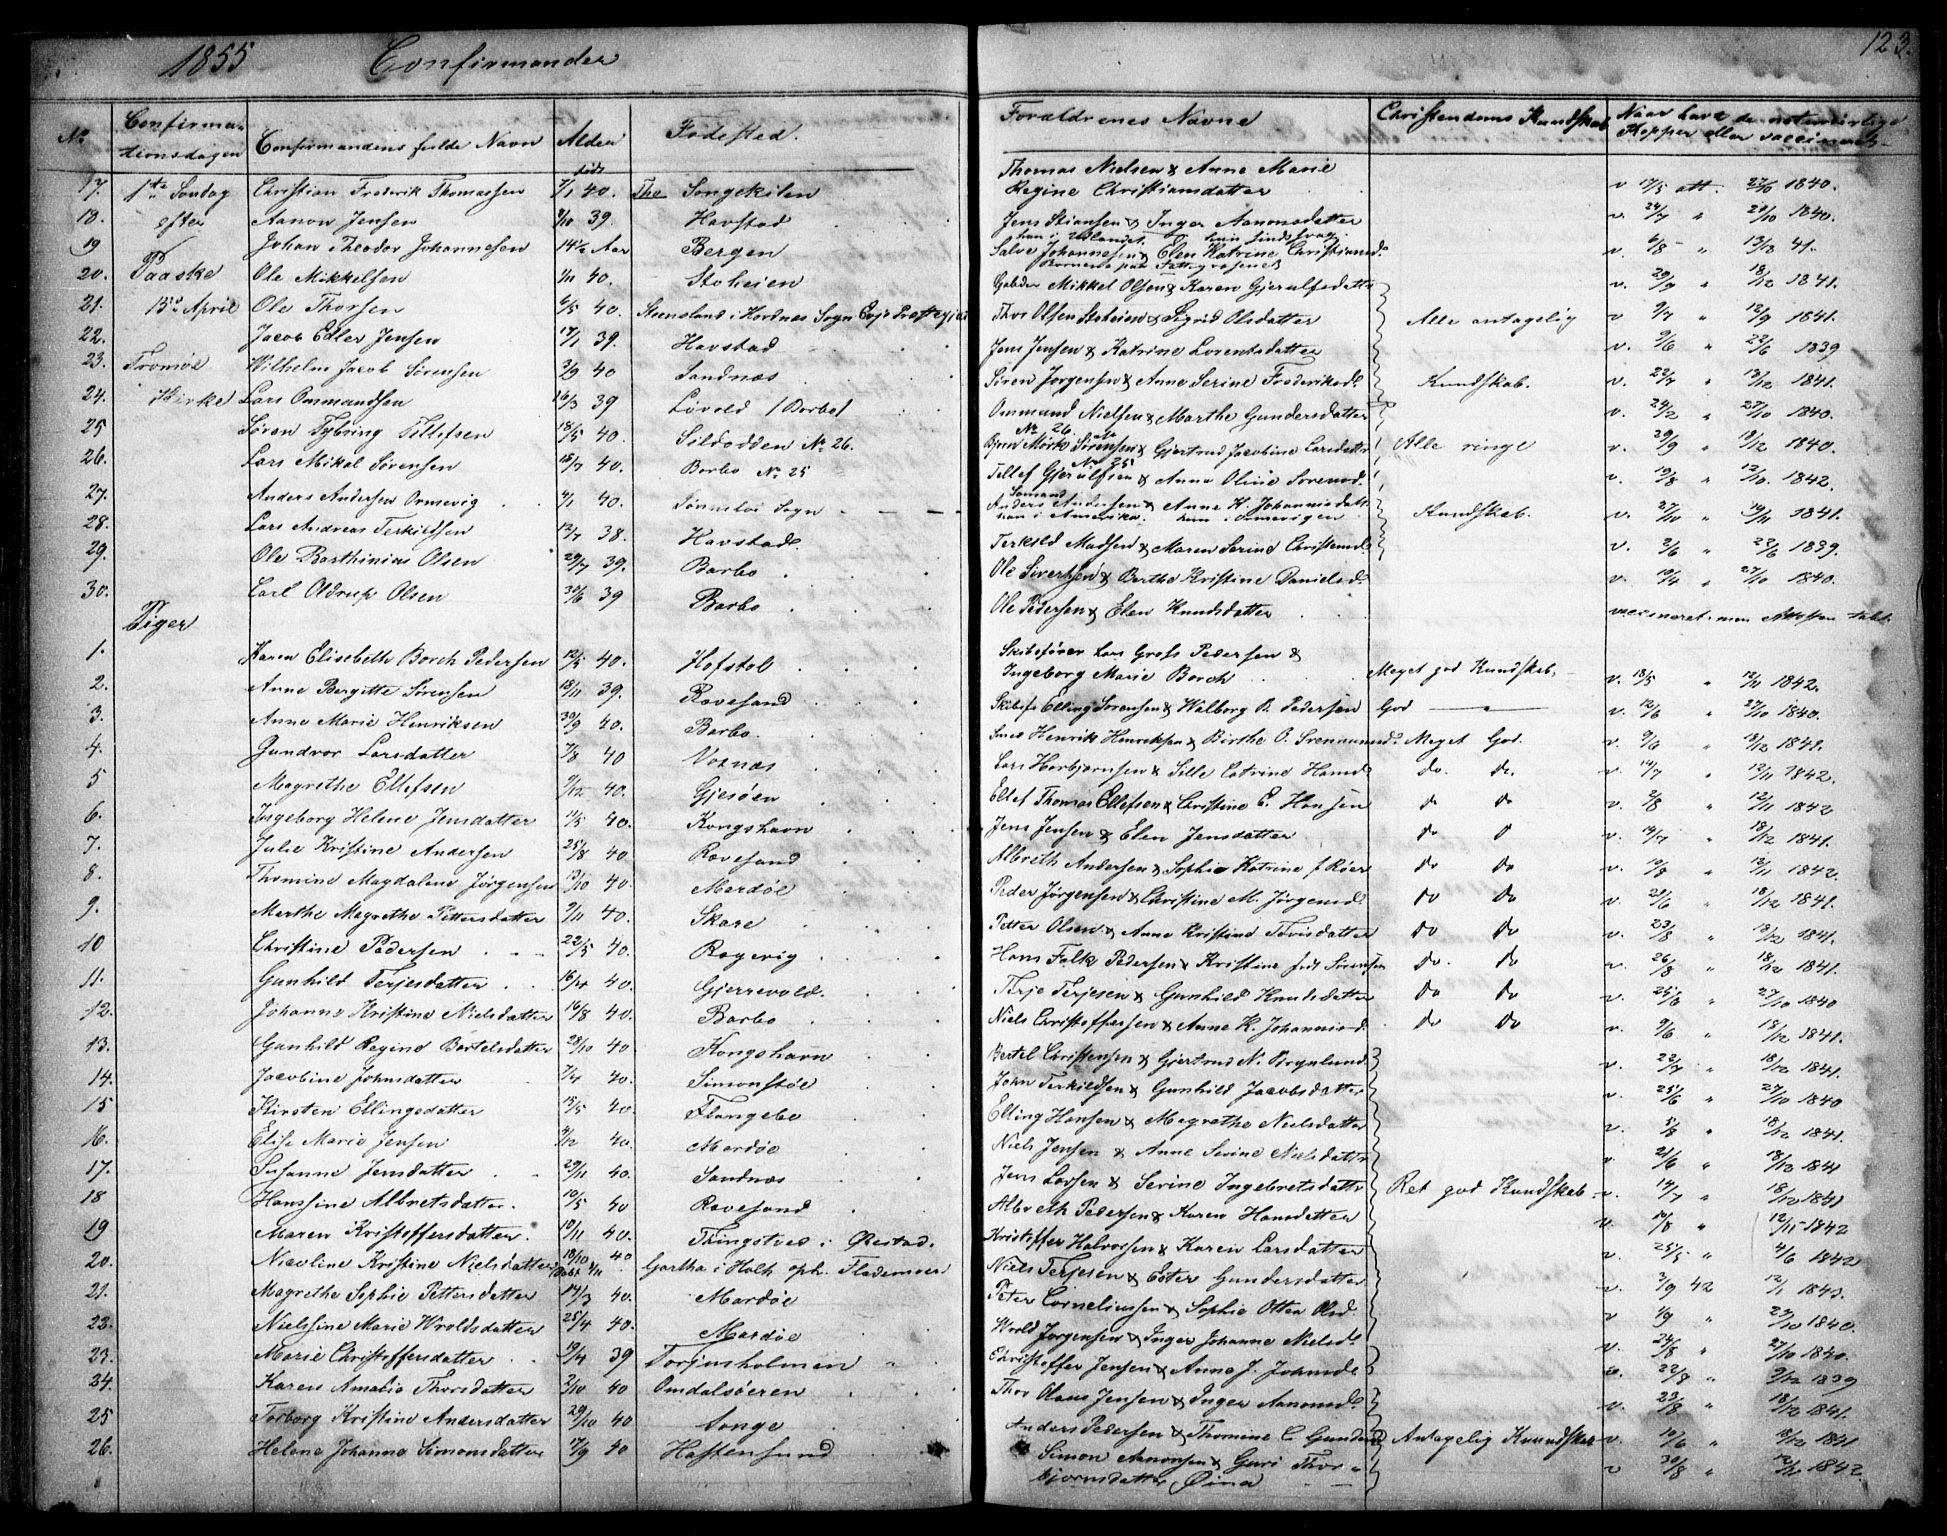 1855 Confirmander
123.
No Confirmationsdagen Confirmandens fulde Navn Alder Fødested. Forældrenes Navne Christendoms Kundskab Naar havt de naturlige Kopper eller vaccineret
født
Thomas Nielsen & Anne Marie
17. 1ste Søndag Christian Frederik Thomassen 7/1 40. Songekilen Regine Christiansdatter v 17/5 att. 27/6 1840.
18. efter Aanon Jensen 9/10 39 Havstad Jens Stiansen & Inger Aanonsdatter v. 24/7 " 29/10 1840.
19 Johan Theodor Johannesen 14½ Aar Bergen Salve Johannesen & Elen Katrine Christiansd. v. 6/8 " 13/12 41.
20. Paaske Ole Mikkelsen 1/11 40. Stoheien Mikkel Olsen & Karen Gjerulfsdatter v. 29/9 " 18/12 1841.
21. 15de April Ole Thorsen 6/5 40. Thor Olsen Stoheien & Sigrid Olsdatter Alle antagelig v. 9/7 " 12/9 1841.
22. Jacob Edler Jensen 17/1 39. Havstad Jens Jensen & Katrine Lorentsdatter v. 2/6 " 22/6 1839
23. Tromøe Wilhelm Jacob Sørensen 3/9 40 Sandnæs Søren Jørgensen & Anne Serine Frederiksd. Kundskab. v. 22/7 " 13/12 1841.
24. Kirke Lars Ommundsen 16/3 39 Løvold /Barbo/ Ommund Nielsen & Marthe Gundersdatter v. 24/2 " 27/10 1840.
No 26.
25 Søren Tybring Tellefsen 18/5 40. Sildodden No 26. Bjørn Mørk Sørensen & Gjertrud Jacobine Larsdatter Alle ringe v. 29/9 " 18/12 1840.
No 25
26. Lars Mikal Sørensen 15/7 40. Barbo No 25 Tellef Gjerulfsen & Anne Oline Sørensd. v. 19/8 " 12/10. 1842.
27. Anders Andersen Ormevig 4/1 40. Sønneløv Sogn Anders Andersen & Anne K. Johannisdatt. Kundskab. v. 27/10 " 14/11 1841.
han i Amerika. hun i Ormevigen
28. Lars Andreas Terkildsen 12/7 38. Havstad. Terkild Madsen & Maren Serine Christensd. v. 2/6 " 22/6 1839.
29. Ole Barthinius Olsen 29/7 39. Barbo Ole Sivertsen & Berthe Kristine Danielsd. v. 10/4 " 27/10 1840.
30. Carl Oldrup Olsen 30/6 39 Barbo Ole Pedersen & Elen Knudsdatter vaccineret men Attesten tabt.
Piger
1. Karen Elisebeth Borch Pedersen 12/5 40. Hofstol Skibsfører Lars Grofs Pedersen &
Ingeborg Marie Borch Meget god Kundskab. v. 18/5 " 12/11 1842.
2. Anne Bergitte Sørensen 18/11 39. Ravesand Skibsfø Elling Sørensen & Walborg P. Pedersen God — " — v. 12/6 " 27/10 1840.
3. Anne Marie Henriksen 30/9 40. Barbo. Henrik Henriksen & Birthe O. Meget God. v. 9/6 " 18/12 1841.
4. Gundvor Larsdatter 7/8 40 Voxnæs Lars Horbjørnsen & Sille Catrine Hansd. do. do. v. 14/7 " 12/11 1842.
5 Magrethe Ellefsen 9/12 40. Gjesøen Ellef Thomas Ellefsen & Christine E. Hansen do do v. 2/8 " 12/11 1842
6. Ingeborg Helene Jensdatter 11/5 40. Kongshavn Jens Jensen & Elen Jensdatter do d v. 19/7 " 18/12 1841.
7. Julie Kristine Andersen 25/8 40 Ravesand Albreth Andersen & Sophie Katrine f Røer do do v. 10/8 " 12/11 1842.
8. Thomine Magdalene Jørgensen 13/10 40. Merdøe Peder Jørgensen & Christine M. Jørgensd. do do v. 29/6 " 18/12 1841.
9. Marthe Magrethe Pettersdatter 9/11 40. Skare Petter Olsen & Anne Kristine Torisdatter do do v. 23/8 " 18/12 1841.
10 Christine Pedersen 22/5 40. Ragevig Hans Falk Pedersen & Kristine født Sørensen do. do v. 26/8 " 18/12 1841.
11. Gunhild Terjesdatter 16/4 40. Gjerrevold. Terje Terjesen & Gunhild Knudsdatter do do v. 25/6 " 27/10 1840
12. Johanne Kristine Nielsdatter 16/8 40. Barbo Niels Christoffersen & Anne K. Johannisd. do do v. 9/6 " 18/12 1841.
13. Gunhild Regine Bertelsdatter 28/10 40 Kongshavn Bertel Christensen & Gjertrud N. v. 22/7 " 18/12 1841.
14. Jacobine Johnsdatter 7/4 40. Simonstøe John Terkildsen & Gunhild Jacobsdatter v. 25/6 " 27/10 1840
15 Kirsten Ellingsdatter 15/5 40. Flangebo Elling Hansen & Magrethe Nielsdatter v. 5/8 " 18/12 1841.
16. Elise Marie Jensen 4/12 40. Merdøe Niels Jensen & Anne Serine Nielsdatter v 21/6 " 18/12 1841
17. Susanne Jensdatter 29/11 40. Sandnæs Jens Larsen & Serine Ingebretsdatter Ret god Kundskab v. 14/7 " 18/12 1841
18 Hansine Albretsdatter. 10/5 40 Ravesand Albreth Pedersen & Karen Hansdatter v. 10/8 " 12/11 1842
19 Maren Kristoffersdatter 10/11 40. Thingstved i Øiestad. Kristoffer Halvorsen & Karen Larsdatter v. 25/5 " 4/6 1842
20. Nicoline Kristine Nielsdatter 18/10 40 Gartha i Holt oph. Fladenvær Niels Terjesen & Ester Gundersdatter v. 3/9 42 12/1 1843.
21. Magrethe Sophie Pettersdatter 14/3 40. Mærdøe Peter Corneliussen & Sophie Otter Olsd. v 1/9 " 27/10 1840.
22. Nielsine Marie Wroldsdatter 25/4 40. Mærdøe Wrold Jørgensen & Inger Johanne Nielsd. v. 24/8 " 27/10 1840.
23. Marie Christoffersdatter 19/4 39 Torjusholmen Christoffer Jensen & Anne J. Johnsd. v. 22/8 " 9/12 1839
24. Karen Amalia Thorsdatter 2/10 40 Omdalsøeren Thor Olaus Jensen & Inger Aanonsd. v. 23/8 " 18/12 1841.
25 Torborg Kristine Andersdatter 29/10 40 Songe Anders Pedersen & Thomine C. Gundersd Antagelig Kundskab v. 10/6 " 18/12 1841
26. Helene Johanne Simonsdatter 17/9 40 Hastensund Simon Aanonsen & Guri Thor- v 30/8 " 12/12 1842.
bjørnsdatter Øina